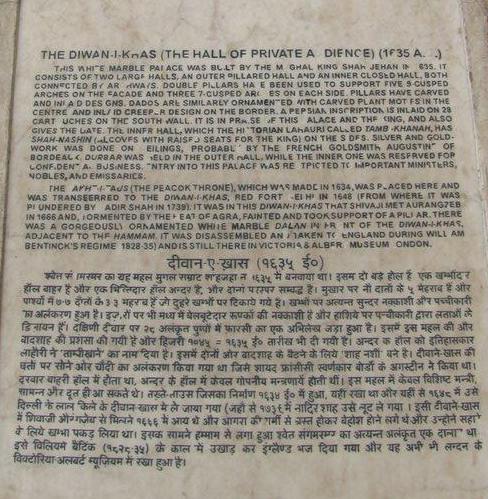 THE DIWAN-I-KHAS (THE HALL OF PRIVATE A DIENCE) (1635 A. .)
THIS WHITE MARBLE PALACE WAS BUILT BY THE M GHAL KING SHAH JEHAN IN 635. IT
CONSISTS OF TWO LARGE HALLS, AN OUTER PILLARED HALL AND AN INNER CLOSED HALL, BOTH
CONNECTED BY AR HWAYS. DOUBLE PILLARS HA E BEEN USED TO SUPPORT FIVE 9-CUSPED
ARCHES ON THE FACADE AND THREE 7-CUSPED AR ES ON EACH SIDE. PILLARS HAVE CARVED
AND INLA D DES GNS. DADOS ARE SIMILARLY ORNAMENTED WITH CARVED PLANT MOTIFS IN THE
CENTRE AND INLAID CREEPER DESIGN ON THE BORDER. A PERSIAN INSCRIPTION IS INLAID ON 28
CART UCHES ON THE SOUTH WALL. IT IS IN PRAISE OF THIS ALACE AND THE KING, AND ALSO
GIVES THE DATE. THE INNER HALL, WHICH THE HI TORIAN LAHAURI CALLED TAMBI-KHANAH, HAS
SHAH-NASHIN (ALCOVES WITH RAISED SEATS FOR THE KING) ON THE SIDES. SILVER AND GOLD-
WORK WAS DONE ON EILINGS, PROBABLY BY THE FRENCH GOLDSMITH AUGUSTIN OF
BORDEAUX. DURBAR WAS HELD IN THE OUTER HALL, WHILE THE INNER ONE WAS RESERVED FOR
CONFIDENT A BUSINESS. ENTRY INTO THIS PALACE WAS RE TRICTED TO IMPORTANT MINISTERS,
NOBLES, AND EMISSARIES.
THE (THE PEACOCK THRONE), WHICH WAS MADE IN 1634, WAS PLACED HERE AND
WAS TRANSFERRED TO THE DIWAN-I-KHAS, RED FORT ELHI IN 1648 (FROM WHERE IT WAS
PLUNDERED BY ADIR SHAH IN 1739). IT WAS IN THIS DIWAN-I-KHAS THAT SHIVAJI MET AURANGZEB
IN 1666 AND, TORMENTED BY THE HEAT OF AGRA, FAINTED AND TOOK SUPPORT OF A PILLAR. THERE
WAS A GORGEOUSLY ORNAMENTED WHITE MARBLE DALAN IN FR NT OF THE DIWAN-I-KHAS,
ADJACENT TO THE HAMMAM. IT WAS DISASSEMBLED AN TAKEN TO ENGLAND DURING WILL AM
BENTINCK'S REGIME 1828-35) AND IS STILL THERE IN VICTORIA & ALBER MUSEUM ONDON.
दीवान-ए-ख़ास (१६३५ ई०)
श्वेत संगमरमर का यह महल मुग़ल सम्राट शाहजहाँ ने १६३५ में बनवाया था। इसमें दो बड़े हॉल हैं एक खम्भोंदार
हॉल बाहर है और एक भित्तिदार हॉल अन्दर है, और दोनों परस्पर सम्बद्ध हैं। मुखार पर नौ दांतों के ५ मेहराब हैं और
पार्श्वों में ७-७ दांतों के ३३ मेहराब हैं जो दुहरे खम्भों पर टिकाये गये हैं। खम्भों पर अत्यन्त सुन्दर नक्काशी और पच्चीकारी
का अलंकरण हुआ है। इज़ारों पर भी मध्य में बेलबूटेदार रूपकों की नक्काशी है और हाशिये पर पच्चीकारी द्वारा लताओं के
डिज़ायन हैं। दक्षिणी दीवार पर २८ अलंकृत पृष्ठों में फ़ारसी का एक अभिलेख जड़ा हुआ है। इसमें इस महल की और
बादशाह की प्रशंसा की गयी है और हिजरी १०४५ = १६३५ ई० तारीख भी दी गयी है। अन्दर के हॉल को इतिहासकार
लाहौरी ने 'ताम्बीख़ाने' का नाम दिया है। इसमें दोनों ओर बादशाह के बैठने के लिये 'शाह नशीं' बने हैं। दीवाने-ख़ास की
छतों पर सोने और चाँदी का अलंकरण किया गया था जिसे शायद फ्रांसीसी स्वर्णकार बोर्डो के अगस्टीन ने किया था।
दरबार बाहरी हॉल में होता था, अन्दर के हॉल में केवल गोपनीय मन्त्रणायें होती थीं। इस महल में केवल विशिष्ट मन्त्री,
सामन्त और दूत ही आ सकते थे। तख़्ते-ताउस जिसका निर्माण १६३४ ई० में हुआ, यहीं रखा था और यहीं से १६४८ में उसे
दिल्ली के लाल किले के दीवान-ख़ास में ले जाया गया (जहाँ से १७३९ में नादिर शाह उसे लूट ले गया)। इसी दीवाने-ख़ास
में शिवाजी औरंगजेब से मिलने १६६६ में आये थे और आगरा की गर्मी से त्रस्त होकर बेहोश होने लगे थे और उन्होंने सहारे
के लिये खम्भा पकड़ लिया था। इसके सामने हम्माम से लगा हुआ श्वेत संगमरमर का अत्यन्त अलंकृत एक दालान था
इसे विलियम बैंटिंक (१८२८-३५) के काल में उखाड़ कर इंग्लैण्ड भेज दिया गया और यह अभी भी लन्दन के
विक्टोरिया-अलबर्ट म्यूज़ियम में रखा हुआ है।